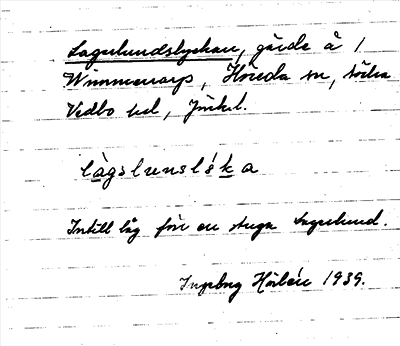 Lagerlundslyckan, gärde å /
Wimmenarp, Höreda sn, Södra
Vedbo hd, Jönk.l.
làgslunslỳka
Intill låg förr en stuga Lagerlund.
Ingeborg Hörlén 1939.